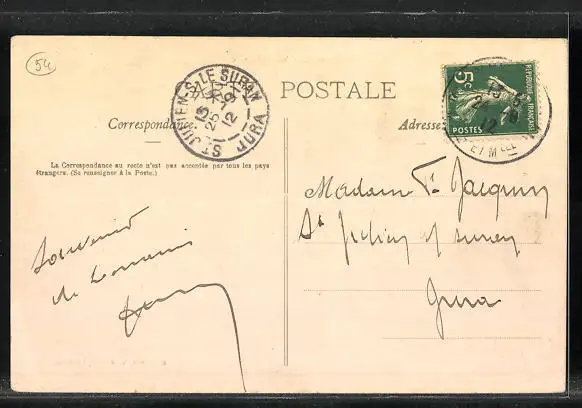 54
POSTALE
Correspondance
Adresse
La Correspondance au recto n'est pas acceptée par tous les pays
étrangers. (Se renseigner à la Poste.)
ST JULIEN-S-LE SURAN
JURA
12
5c
REPUBLIQUE FRANÇAISE
POSTES
12
ET MELLE
Madame Vve Jacquin
St Julien s/ Suran
Jura
Souvenir
de Lorraine